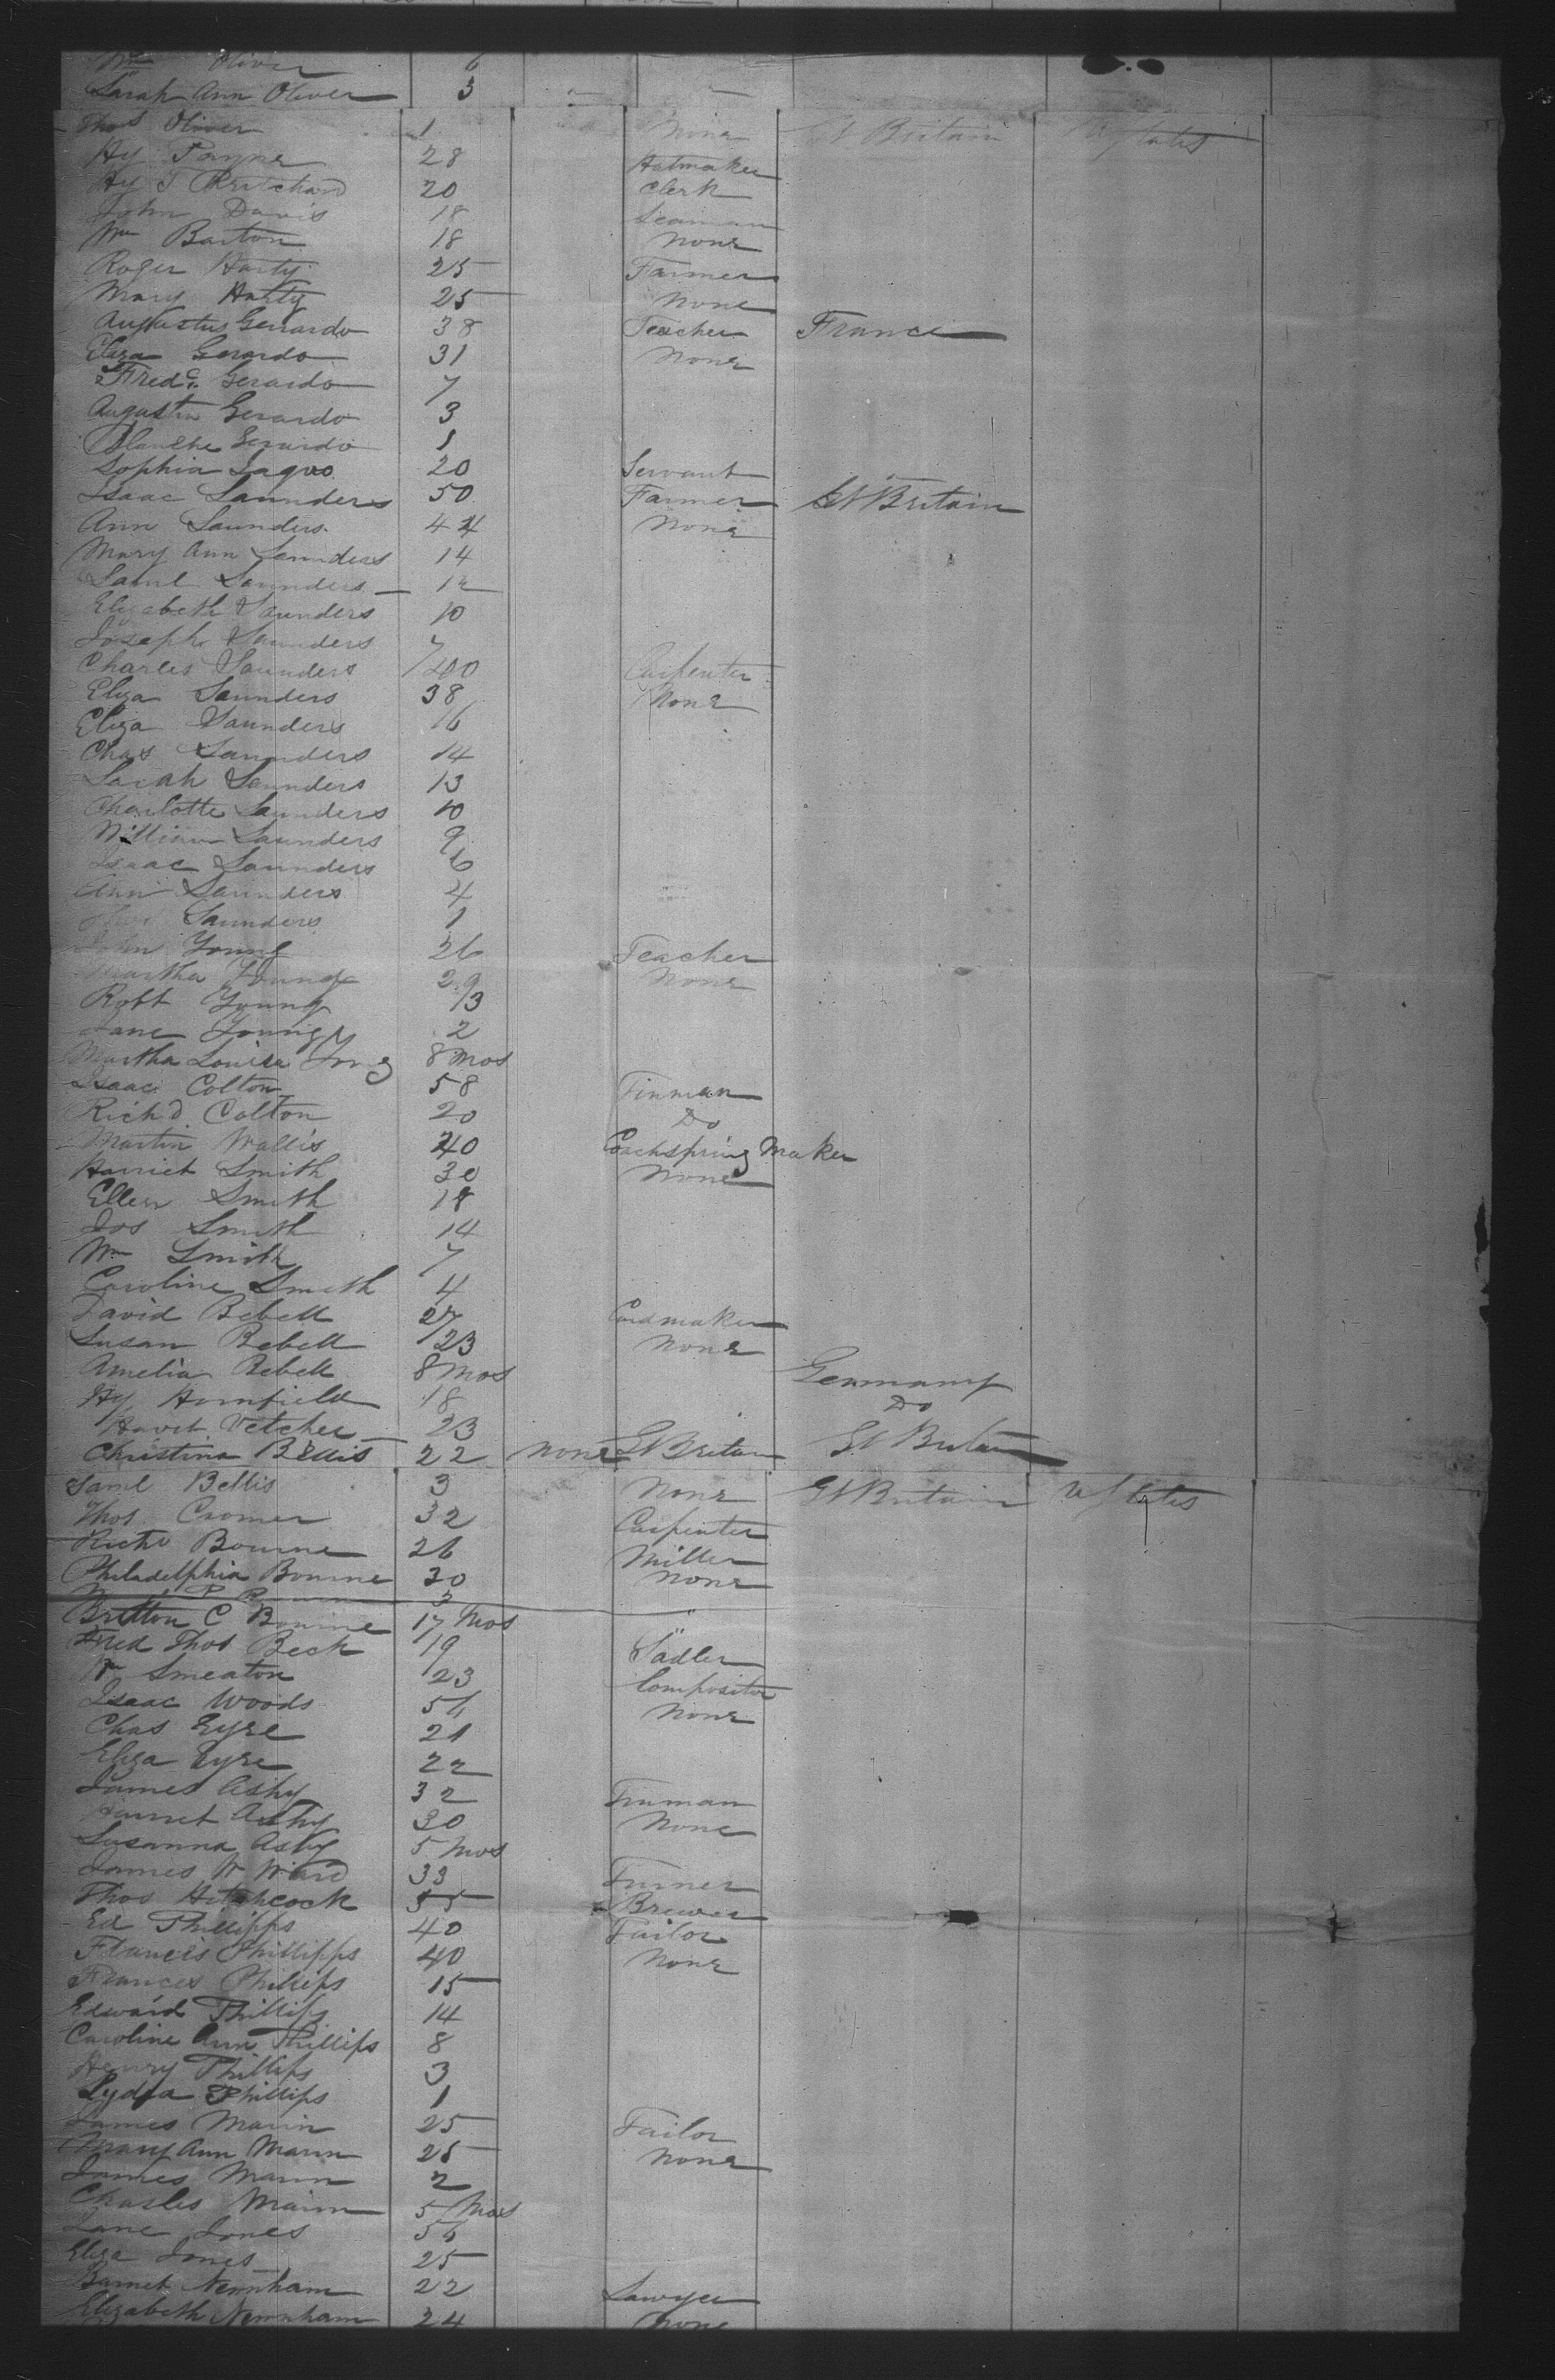 Wm Oliver 6
Sarah Ann Oliver 3
Thos Oliver 1 None Gt Britain U States
Hy Payne 28 Hatmaker
Hy T Pritchard 20 Clerk
John Davis 18 Seaman
Wm Barton 18 None
Roger Harty 25 Farmer
Mary Harty 25 None
Augustus Gerardo 38 Teacher France
Eliza Gerardo 31 None
Fredc Gerardo 7
Augustin Gerardo 3
Blanche Gerardo 1
Sophia 20 Servant
Isaac Saunders 50 Farmer Gt Britain
Ann Saunders 44 None
Mary Ann Saunders 14
Saml Saunders 12
Elizabeth Saunders 10
Joseph Saunders 7
Charles Saunders 40 Carpenter
Eliza Saunders 38 None
Eliza Saunders 16
Chas Saunders 14
Sarah Saunders 13
Charlotte Saunders 10
William Saunders 9
Isaac Saunders 6
Ann Saunders 4
Saunders 1
John Young 26 Teacher
Martha Young 29 None
Robt Young 3
Jane Young 2
Martha Louisa Yng 8 Mos
Isaac Colton 58 Tinman
Richd Colton 20 Do
Martin Wallis 40 Coachspring Maker
Harriet Smith 30 None
Ellen Smith 18
Jos Smith 14
Wm Smith 7
Caroline Smith 4
David Bebell 27 Cardmaker
Susan Bebell 23 None
Amelia Bebell 8 Mos
Hy Hornfield 18 Germany
Vetcher 23 Do
Christina Bellis 22 None Gt Britain Gt Britain
Saml Bellis 3 None Gt Britain U States
Thos Cromer 32 Carpenter
Richd Bourne 26 Miller
Philadelphia Bourne 30 None
3
Britton C Bourne 17 Mos
Fred Thos Beck 19 Sadler
Wm Smeaton 23 Compositor
Isaac Woods 56 None
Chas Eyre 21
Eliza Eyre 22
James Ashy 32 Tinman
Harriet Ashy 30 None
Susanna Ashy 5 Mos
James W Ward 33 Turner
Thos Hitchcock 55 Brewer
Ed Phillipps 40 Tailor
Francis Phillipps 40 None
Frances Phillips 15
Edward Phillips 14
Caroline Ann Phillips 8
Henry Phillips 3
Lydia Phillips 1
James Marin 25 Tailor
Mary Ann Marin 25 None
James Marin 2
Charles Marin 5 Mos
Jane Jones 56
Eliza Jones 25
Barnet Newnham 22 Lawyer
Elizabeth Newnham 24 None